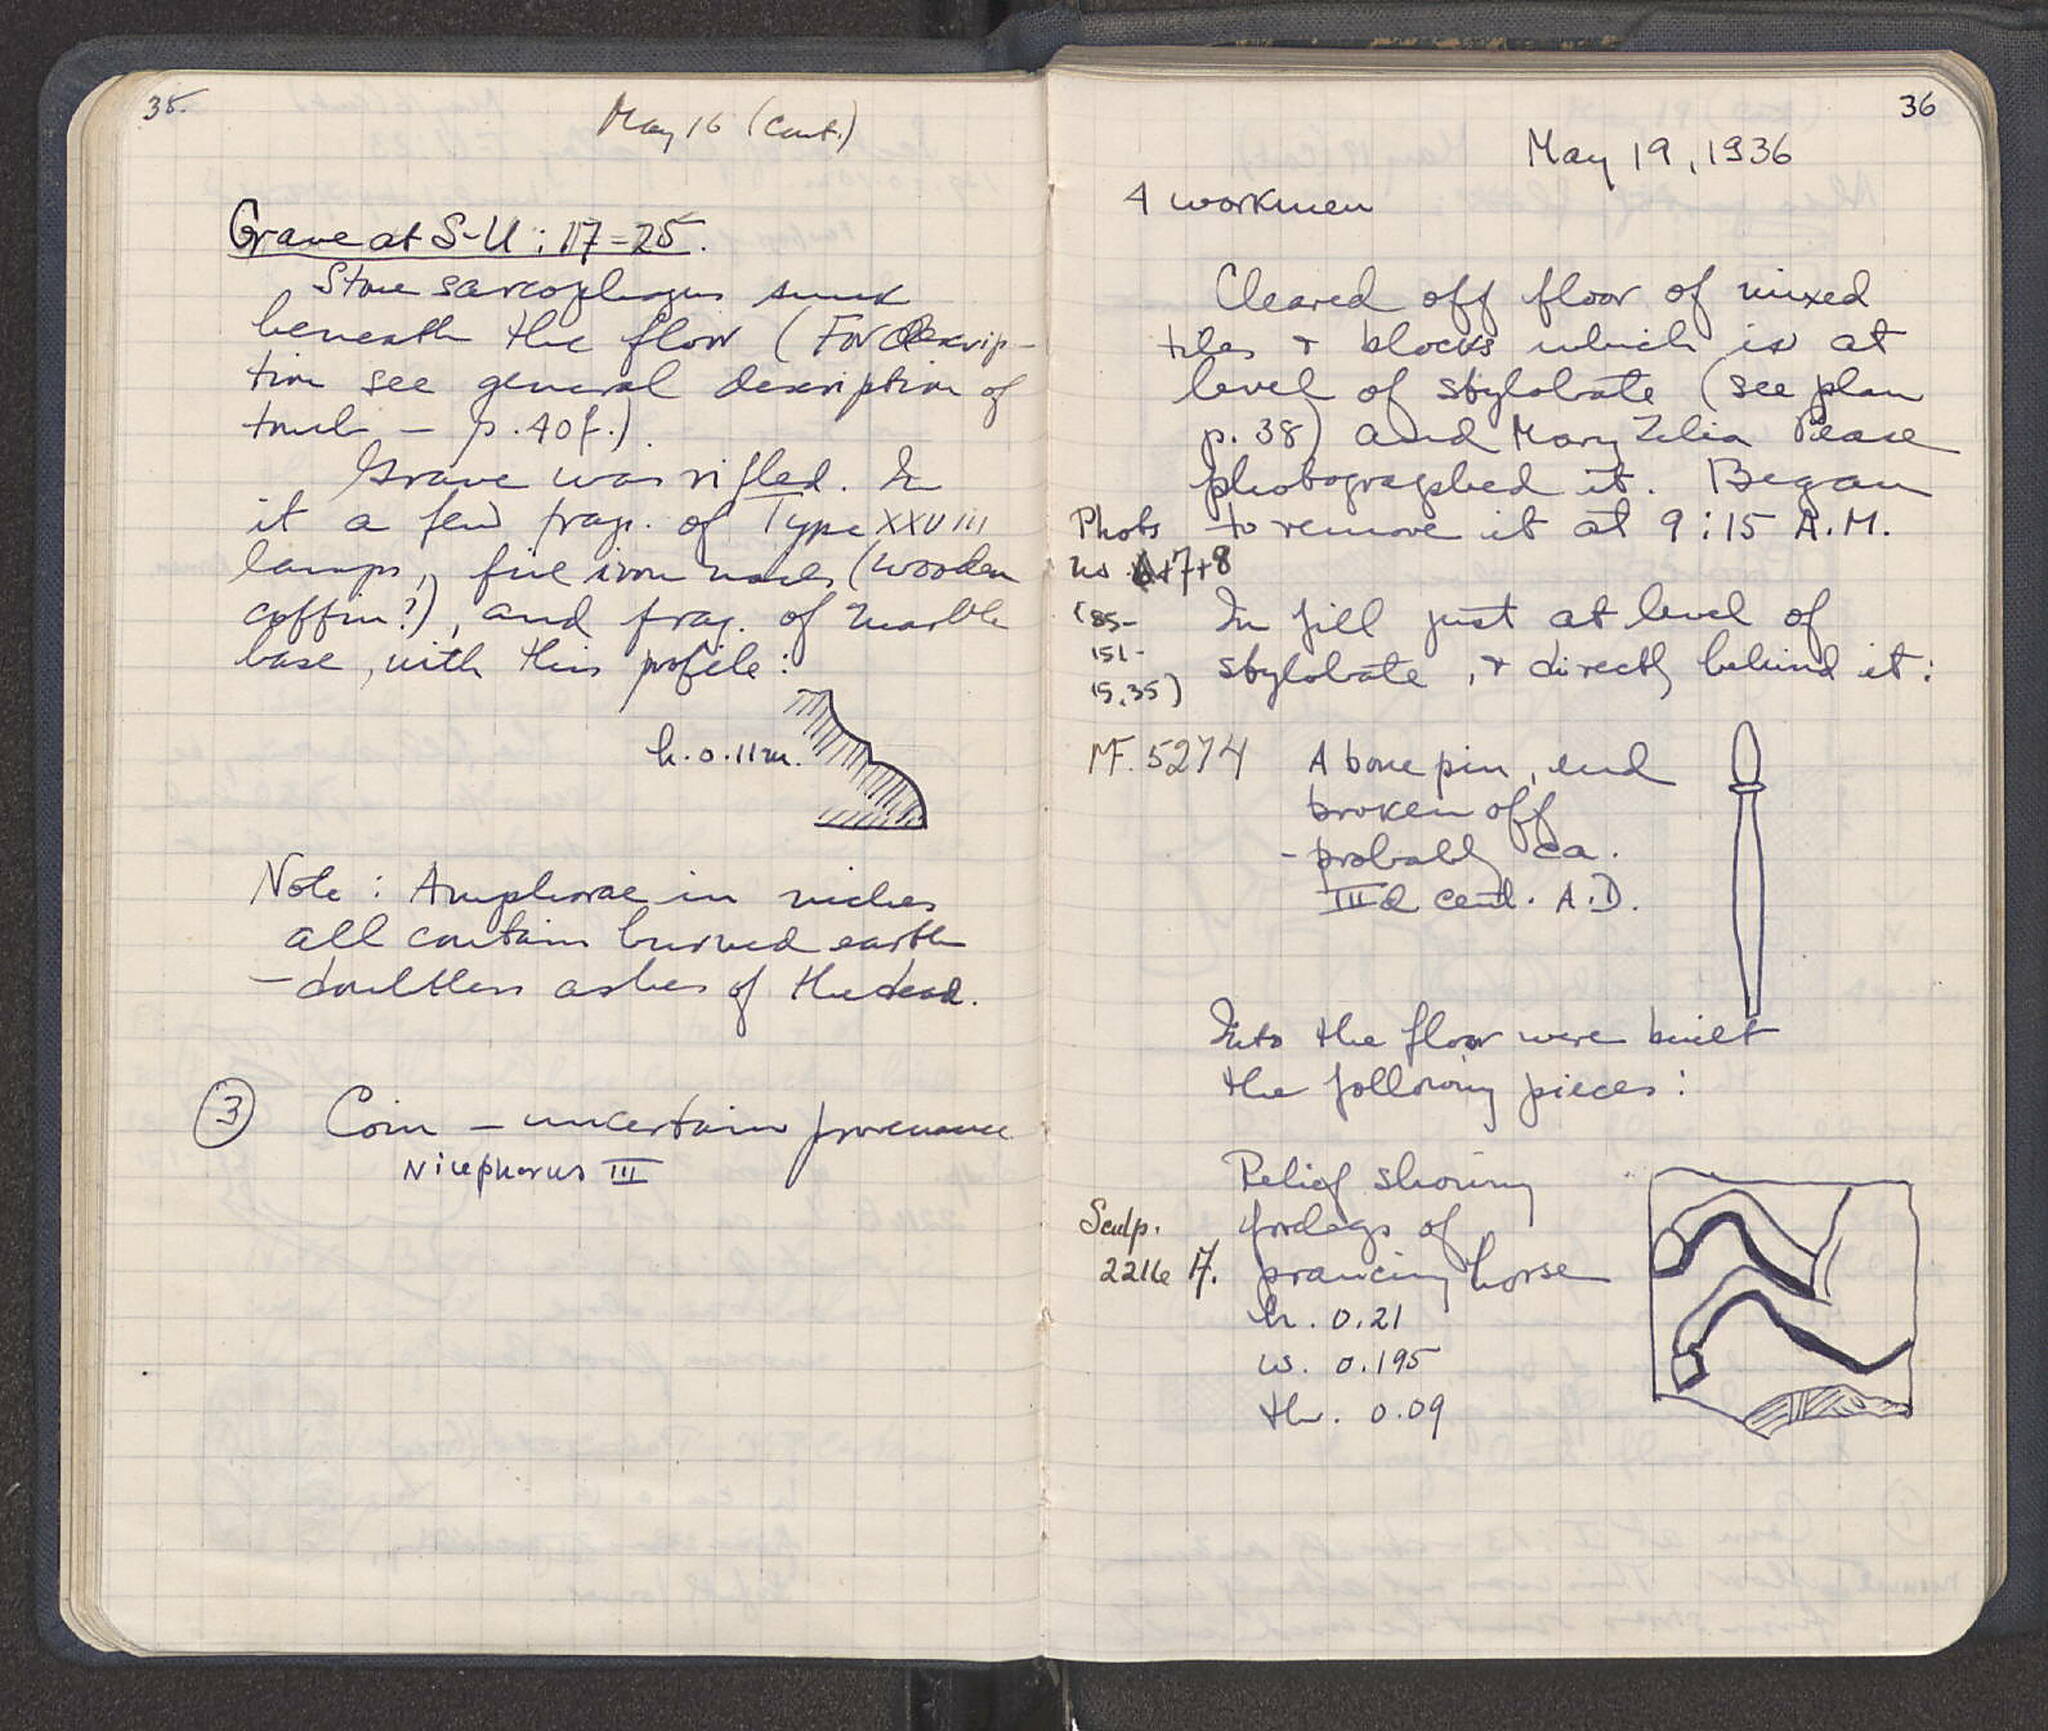 35.
May 16 (cont.)
Grave at S-U : 17=25.
Stone sarcophagus sunk
beneath the floor (For descrip-
tion see general description of
tomb — p. 40 f.).
Grave was rifled. In
it a few frag. of Type XXVIII
lamps, five iron nails (wooden
coffin?), and frag. of marble
base, with this profile :
h. 0.11 m.
Note : Amphorae in niches
all contain burned earth
— doubtless ashes of the dead.
3 Coin — uncertain provenance
Nicephorus III
36
May 19, 1936
4 workmen
Cleared off floor of mixed
tiles + blocks which is at
level of stylobate (see plan
p. 38) and Mary Zelia Pease
photographed it. Began
to remove it at 9:15 A.M.
Phots
no. 6+7+8
(85-
151-
15,35)
In fill just at level of
stylobate, + directly behind it :
MF. 5274
A bone pin, end
broken off
- probably ca.
IIId cent. A.D.
Into the floor were built
the following pieces :
Sculp.
2216 A.
Relief showing
forelegs of
prancing horse
h. 0.21
w. 0.195
th. 0.09